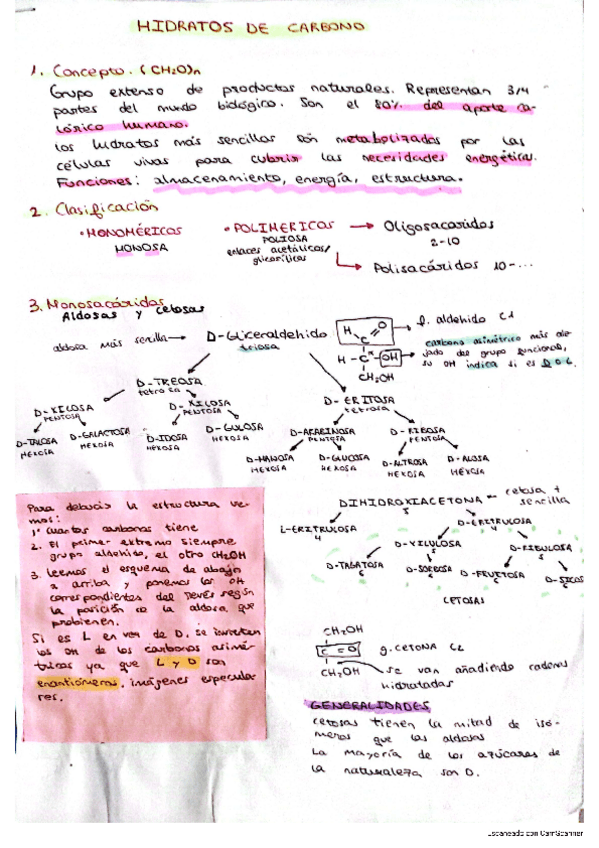 HIDRATOS DE CARBONO
1. Concepto. (CH2O)n
Grupo extenso de productos naturales. Representan 3/4
partes del mundo biológico. Son el 80% del aporte ca-
lórico humano.
Los hidratos más sencillos són metabolizados por las
células vivas para cubrir las necesidades energéticas.
Funciones: almacenamiento, energía, estructura.
2. Clasificación
• MONOMÉRICOS
MONOSA
• POLIMERICOS
POLIOSA
enlaces acetálicos/
glicosílicos
→ Oligosacáridos
2-10
Polisacáridos 10-...
3. Monosacáridos
Aldosas y cetosas
aldosa más sencilla → D-Gliceraldehido
triosa
H
O
C
H - C* - OH
CH2OH
f. aldehido C1
carbono asimétrico más ale-
jado del grupo funcional,
su OH indica si es D o L.
D-TREOSA
tetrosa
D-ERITOSA
tetrosa
D-XILOSA
PENTOSA
D-XILOSA
PENTOSA
D-ARABINOSA
PENTOSA
D-RIBOSA
PENTOSA
D-TALOSA
HEXOSA
D-GALACTOSA
HEXOSA
D-IDOSA
HEXOSA
D-GULOSA
HEXOSA
D-MANOSA
HEXOSA
D-GLUCOSA
HEXOSA
D-ALTROSA
HEXOSA
D-ALOSA
HEXOSA
Para deducir la estructura ve-
mos:
1º cuantos carbonos tiene
2. El primer extremo siempre
grupo aldehido, el otro CH2OH
3. Leemos el esquema de abajo
a arriba y ponemos los OH
correspondientes del revés según
la posición de la aldosa que
probienen.
Si es L en vez de D, se invierten
los OH de los carbonos asimé-
tricos ya que L y D son
enantiómeros, imágenes especula-
res.
DIHIDROXIACETONA
3
cetosa +
sencilla
L-ERITRULOSA
4
D-ERITRULOSA
4
D-XILULOSA
5
D-RIBULOSA
5
D-TAGATOSA
6
D-SORBOSA
6
D-FRUCTOSA
6
D-SICOS
6
CETOSAS
CH2OH
C = O
CH2OH
g. CETONA C2
se van añadiendo cadenas
hidratadas
GENERALIDADES
Cetosas tienen la mitad de isó-
meros que las aldosas
La mayoría de los azúcares de
la naturaleza son D.
Escaneado con CamScanner